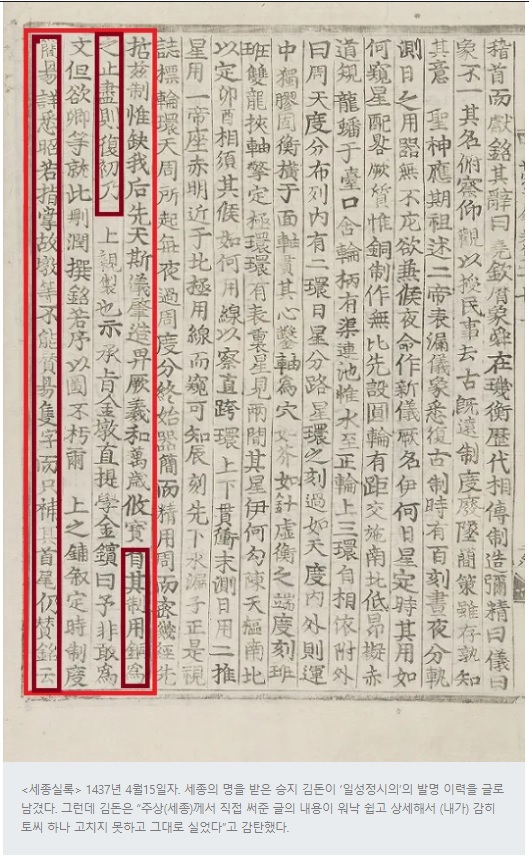 稽首而獻銘其辭曰堯欽曆象舜在璣衡歷代相傳制造彌精曰儀曰
象不一其名俯察仰觀以授民事去古旣遠制度廢墜簡策雖存孰知
其意 聖神應期祖述二帝表漏儀象悉復古制時有百刻晝夜分軌
測日之用器無不庀欲兼候夜命作新儀厥名伊何日星定時其用如
何窺星配晷厥質惟銅制作無比先設圓輪有距交施南北低昂擬赤
道規龍蟠于臺口含輪柄有渠連池惟水至正輪上三環自相依附外
曰周天度分布列內有二環日星分路星環之刻過如天度內外則運
中獨膠固衡橫于面軸貫其心鑿軸爲穴如芥如針虛衡之端度刻班
班雙龍挾軸擎定極環環有表裏星見兩間其星伊何勾陳天樞南北
以定卯酉相須其候如何用線以察直跨環上下貫衡末測日用二推
星用一帝座赤明近于北極用線而窺可知辰刻先下水漏子正是視
誌標輪環天周所起每夜過周度分終始器簡而精用周而密幾經先
哲玆制惟缺我后先天斯儀肇造畀厥羲和萬歲攸寶自其制用銅爲
之止盡則復初乃 上親製也示承旨金墩直提學金鑌曰予非敢爲
文但欲卿等就此刪潤撰銘若序以圖不朽爾 上之鋪敍定時制度
簡易詳悉昭若指掌故墩等不能質易隻字而只補其首尾仍贊銘云
<세종실록> 1437년 4월15일자. 세종의 명을 받은 승지 김돈이 ‘일성정시의’의 발명 이력을 글로
남겼다. 그런데 김돈은 “주상(세종)께서 직접 써준 글의 내용이 워낙 쉽고 상세해서 (내가) 감히
토씨 하나 고치지 못하고 그대로 실었다”고 감탄했다.